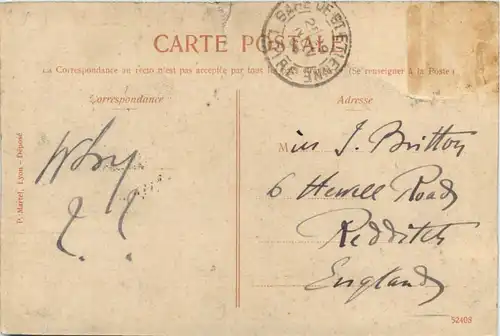 CARTE POSTALE
La Correspondance au recto n'est pas acceptée par tous les (Se renseigner à la Poste)
Correspondance
Adresse
GARE DE ST ETIENNE
LOIRE
Why
? ?
Miss J. Britton
6 Hewell Road
Redditch
England
P. Martel, Lyon - Déposé
52408